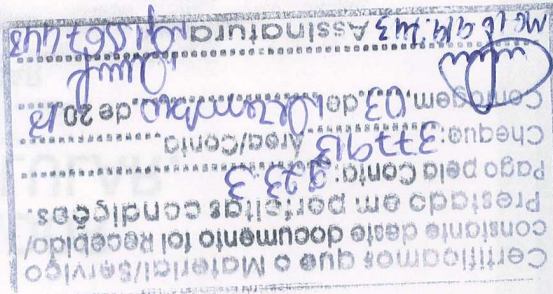 Certificamos que o Material/Serviço
constante deste documento foi Recebido/
Prestado em perfeitas condições.
Pago pela Conta: 323-3
Cheque: 377913 Área/Conta
Contagem, 03, de Dezembro, de 20
Assinatura